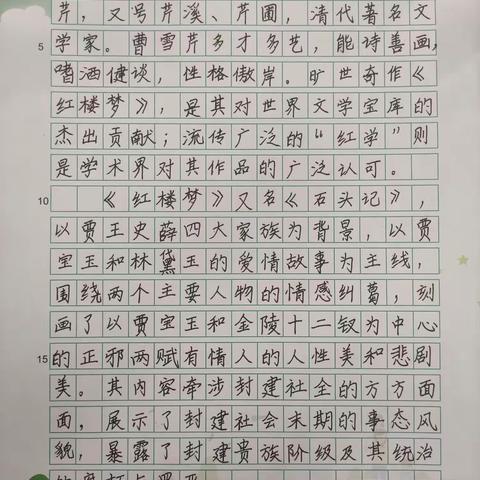 芹，又号芹溪、芹圃，清代著名文
5
学家。曹雪芹多才多艺，能诗善画，
嗜酒健谈，性格傲岸。旷世奇作《
红楼梦》，是其对世界文学宝库的
杰出贡献；流传广泛的“红学”则
是学术界对其作品的广泛认可。
10
《红楼梦》又名《石头记》，
以贾王史薛四大家族为背景，以贾
宝玉和林黛玉的爱情故事为主线，
围绕两个主要人物的情感纠葛，刻
画了以贾宝玉和金陵十二钗为中心
15
的正邪两赋有情人的人性美和悲剧
美。其内容牵涉封建社全的方方面
面，展示了封建社会末期的事态风
貌，暴露了封建贵族阶级及其统治